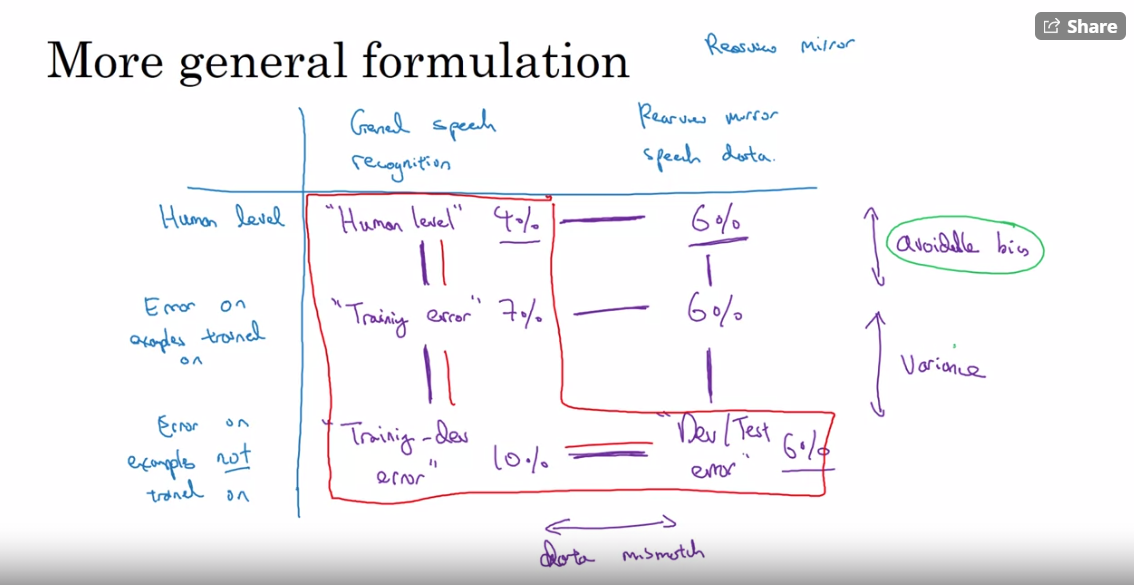 Share
More general formulation
Rearview mirror
General speech
recognition
Rearview mirror
speech data.
Human level
"Human level" 4%
6%
avoidable bias
Error on
examples trained
on
"Training error" 7%
6%
Variance
Error on
examples not
trained on
"Training-dev
error"
10%
"Dev/Test
error"
6%
data mismatch